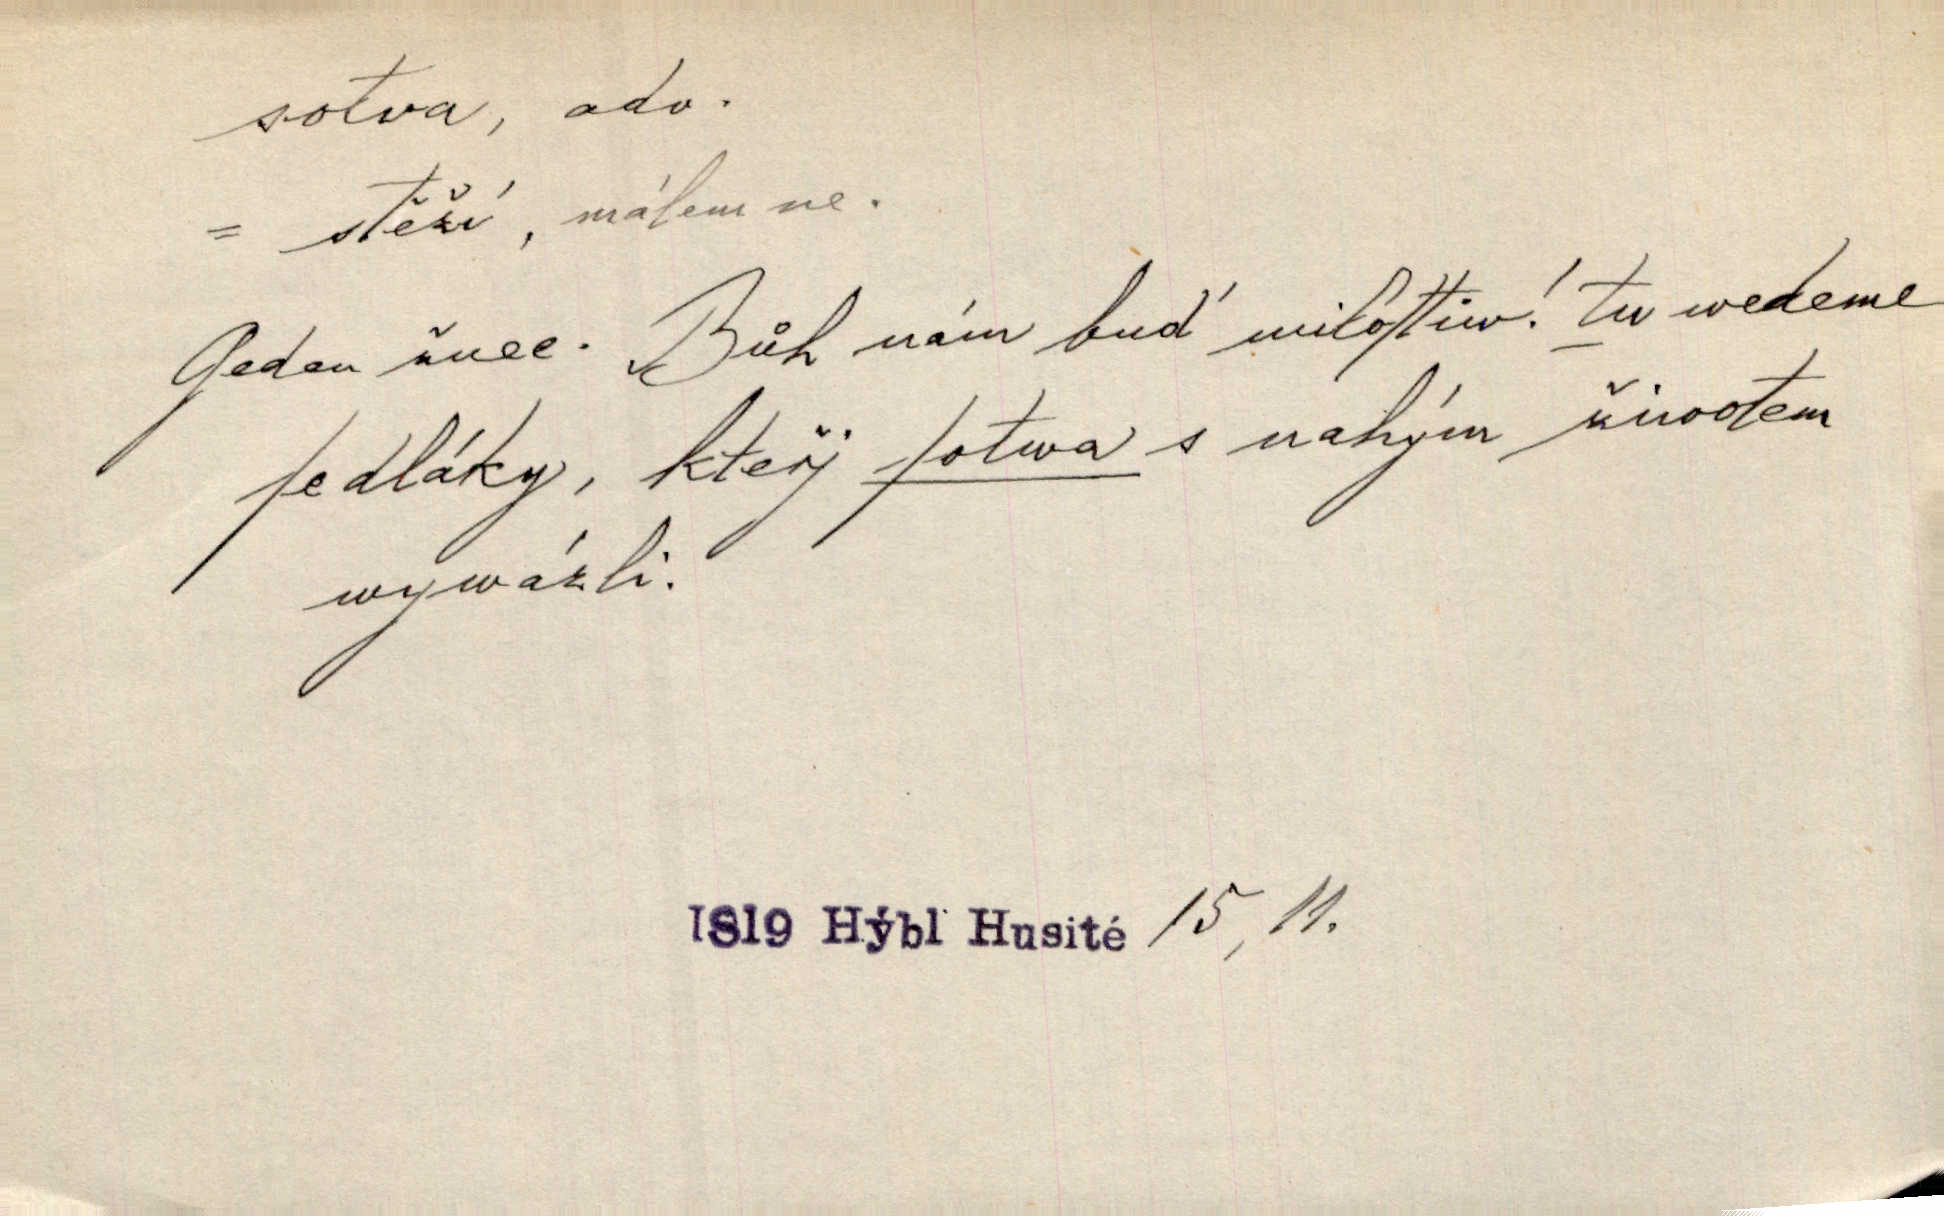 sotva, adv.
= stěží, málem ne.
Geden žnec. Bůh nám buď milostiw! tu wedeme
ſedláky, kteřj ſotwa s nahým životem
wywázli.
1819 Hýbl Husité 15, 11.